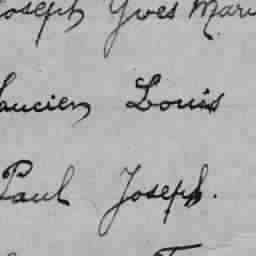 Joseph Yves Mari
Lucien Louis
Paul Joseph.